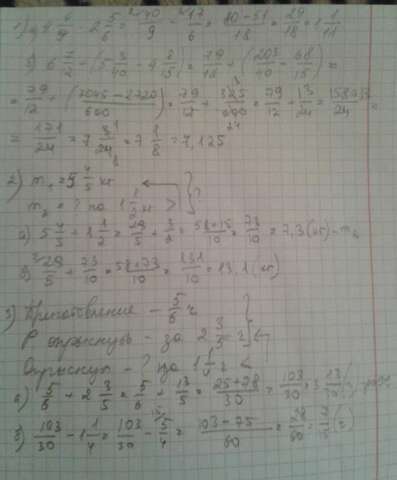 1) a) 4 4/9 - 2 5/6 = 40/9 - 17/6 = 80-51/18 = 29/18 = 1 1/11
б) 6 7/12 + (5 3/40 - 4 8/15) = 79/12 + (203/40 - 68/15) =
= 79/12 + (3045-2720/600) = 79/12 + 325/600 = 79/12 + 13/24 = 158+13/24 =
= 171/24 = 7 3/24 = 7 1/8 = 7,125
2) m₁ = 5 4/5 кг
m₂ = ? на 1 1/2 кг >
a) 5 4/5 + 1 1/2 = 29/5 + 3/2 = 58+15/10 = 73/10 = 7,3 (кг) - m₂
б) 29/5 + 73/10 = 58+73/10 = 131/10 = 13,1 (кг)
3) Приготовление - 5/6 ч
- за 2 3/5 ч
- ? за 1 1/4 ч
a) 5/6 + 2 3/5 = 5/6 + 13/5 = 25+78/30 = 103/30 = 3 13/30
б) 103/30 - 1 1/4 = 103/30 - 5/4 = 103-75/60 = 28/60 = 7/15 (ч)